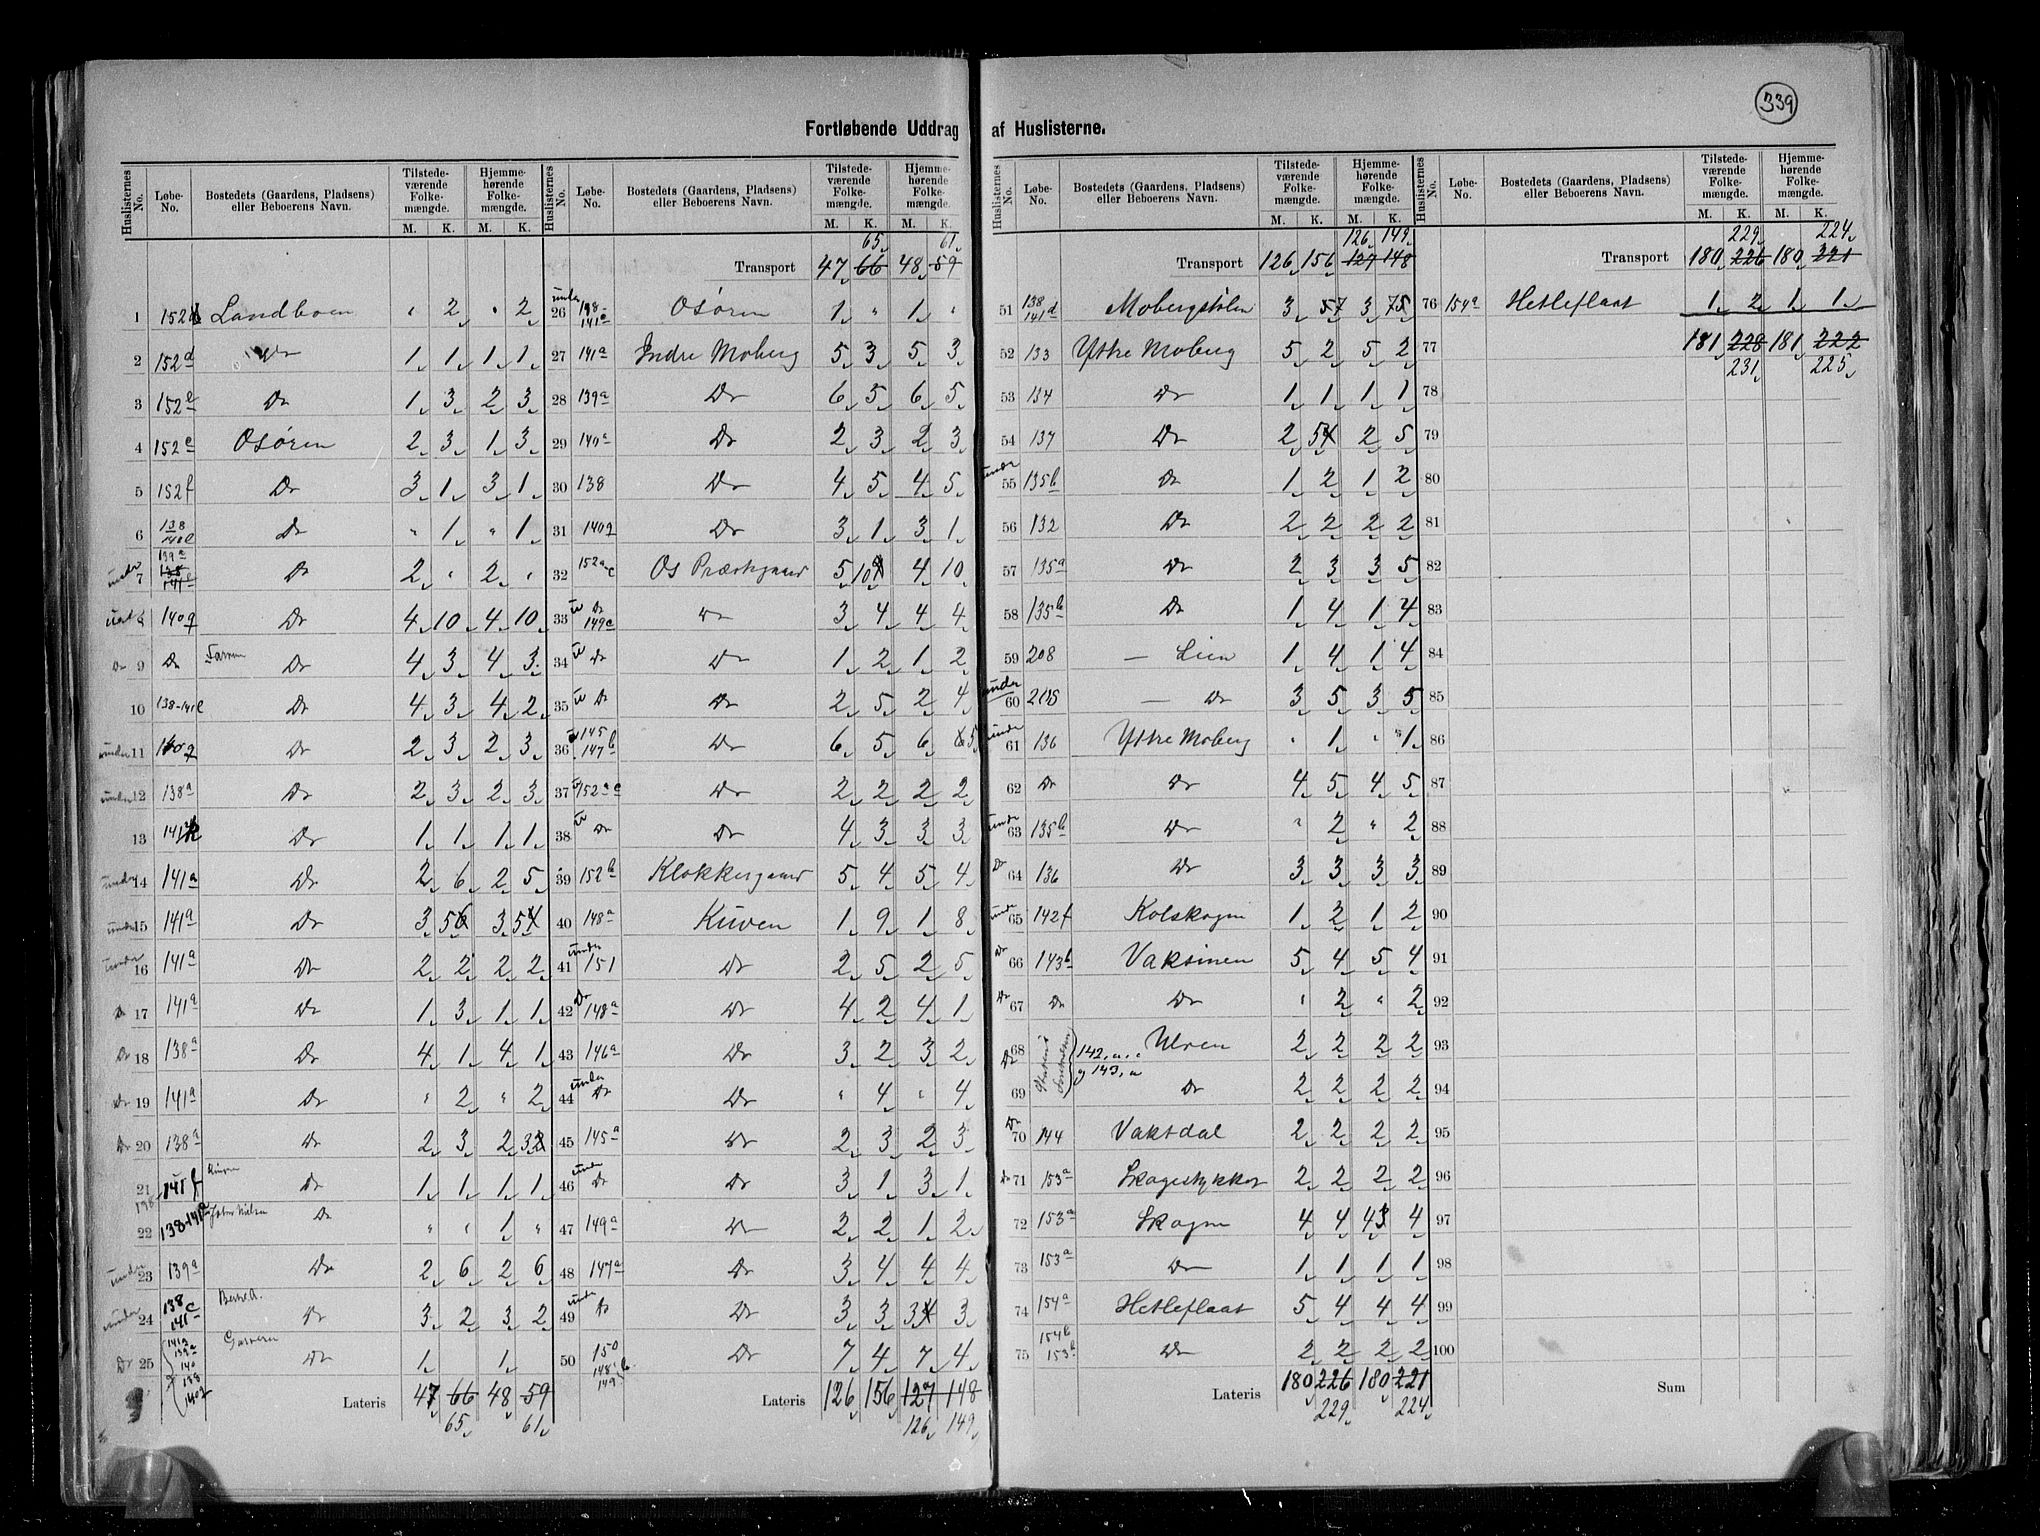 339
Fortløbende Uddrag af Huslisterne.
Huslisternes No. Løbe-No. Bostedets (Gaardens, Pladsens) eller Beboerens Navn. Tilstedeværende Folkemængde. M. K. Hjemmehørende Folkemængde. M. K.
1 Landboen " 2 " 2
2 152d Do 1 1 1 1
3 152e Do 1 3 2 3
4 152e Osøren 2 3 1 3
5 152f Do 3 1 3 1
6 138/140e Do " 1 " 1
under 7 139a Do 2 " 2 "
8 140q Do 4 10 4 10
Do 9 Do Do 4 3 4 3
10 138-141e Do 4 3 4 2
under 11 140q Do 2 3 2 3
under 12 138a Do 2 3 2 3
13 Do 1 1 1 1
under 14 141a Do 2 6 2 5
under 15 141a Do 3 5 3 5
under 16 141a Do 2 2 2 2
Do 17 141a Do 1 3 1 1
Do 18 138a Do 4 1 4 1
Do 19 141a Do " 2 " 2
Do 20 138a Do 2 3 2 3
21 141f Do 1 1 1 1
22 138-141a Do " " 1 "
under 23 139a Do 2 6 2 6
under 24 138 141c Do 3 2 3 2
Do 25 141a 139a 140 Do 1 1
Lateris 47 66 48 59
65 61
65 61
Transport 47 66 48 59
under 26 Osøren 1 " 1 "
27 141a Indre Moberg 5 3 5 3
28 139a Do 6 5 6 5
29 140a Do 2 3 2 3
30 138 Do 4 5 4 5
31 140q Do 3 1 3 1
32 Os Præstegaard 5 10 4 10
33 Do 149c Do 3 4 4 4
34 Do Do 1 2 1 2
35 Do Do 2 5 2 4
36 145 147b Do 6 5 6 5
37 Do 2 2 2 2
38 Do Do 4 3 3 3
39 152b Klokkergaard 5 4 5 4
40 148a Kuven 1 9 1 8
under 41 151 Do 2 5 2 5
Do 42 148a Do 4 2 4 1
43 146a Do 3 2 3 2
under 44 Do Do " 4 " 4
45 145a Do 2 3 2 3
under 46 Do Do 3 1 3 1
47 149a Do 2 2 1 2
48 147a Do 3 4 4 4
under 49 Do Do 3 3 3 3
50 150 148 149 Do 7 4 7 4
Lateris 126 156 127 148
126 149
126 149
Transport 126 156 127 148
51 138/141d Mobergstølen 3 7 3 5
52 133 Ytre Moberg 5 2 5 2
53 134 Do 1 1 1 1
54 137 Do 2 5 2 5
under 55 135b Do 1 2 1 2
56 132 Do 2 2 2 2
57 135a Do 2 3 3 5
58 135b Do 1 4 1 4
59 208 — Lien 1 4 1 4
under 60 208 — Do 3 5 3 5
under 61 136 Ytre Moberg " 1 " 1
62 Do Do 4 5 4 5
under 63 135b Do " 2 " 2
Do 64 136 Do 3 3 3 3
65 142f Kolskogen 1 2 1 2
Do 66 143b Vaksinen 5 4 5 4
Do 67 Do Do " 2 " 2
Do 68 142, a. Ulven 2 2 2 2
69 g 143, a Do 2 2 2 2
Do 70 144 Vaksdal 2 2 2 2
Do 71 153a Skogestykket 2 2 2 2
72 153a Skogen 4 4 3 4
73 153a Do 1 1 1 1
74 154a Hetleflaat 5 4 4 4
75 154b 153b Do 2 2 2 2
Lateris 180 226 180 221
229 224
229 224
Transport 180 226 180 221
76 154a Hetleflaat 1 2 1 1
77 181 228 181 222
231 225
78
79
80
81
82
83
84
85
86
87
88
89
90
91
92
93
94
95
96
97
98
99
100
Sum